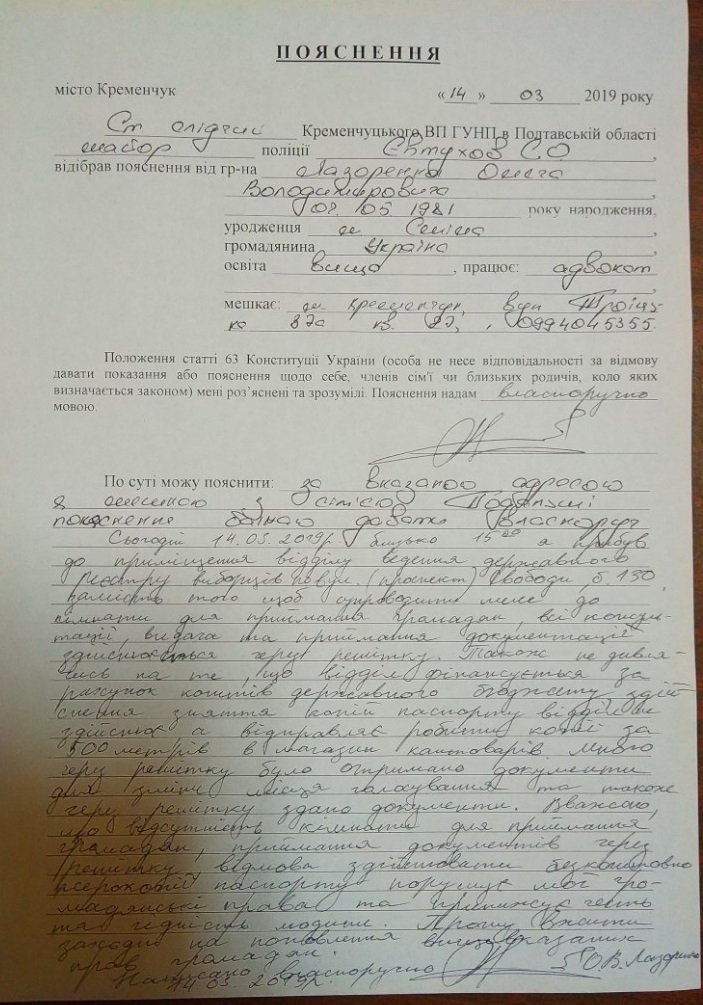 ПОЯСНЕННЯ
місто Кременчук «14» 03 2019 року
Ст слідчий Кременчуцького ВП ГУНП в Полтавській області
майор поліції Євтухов С О,
відібрав пояснення від гр-на Лазоренка Олега
Володимировича
08. 05 1981 року народження,
уродженця
громадянина Україна
освіта вища, працює: адвокат
мешкає: м. Кременчук, вул Троїць-
ка 37а кв. 27, , 0994045355.
Положення статті 63 Конституції України (особа не несе відповідальності за відмову
давати показання або пояснення щодо себе, членів сім'ї чи близьких родичів, коло яких
визначається законом) мені роз'яснені та зрозумілі. Пояснення надам власноручно
мовою.
По суті можу пояснити: за вказаною адресою
я мешкаю з сім'єю
пояснення бажаю давати власноруч
Сьогодні 14.03.2019р. близько 15 00 я прибув
до приміщення відділу ведення державного
реєстру виборців по вул. (проспект) Свободи б. 130,
замість того щоб супроводити мене до
кімнати для приймання громадян, всі консуль-
тації, видача та приймання документації
здійснюється через решітку. Також не дивля-
чись на те, що відділ фінансується за
рахунок коштів державного бюджету здій
снення зняття копій паспорту відділ не
здійснює а відправляє робити копії за
500 метрів в магазин канцтоварів. Мною
через решітку було отримано документи
для зміни місця голосування та також
через решітку здано документи. Вважаю,
що відсутність кімнати для приймання
громадян, приймання документів через
решітку, відмова здійснювати безкоштовно
ксерокопії паспорту порушує мої гро-
мадянські права та принижує честь
та гідність людини. Прошу вжити
заходи на поновлення вищевказаних
прав громадян.
Написано власноручно О.В. Лазоренко
14 03 2019р.